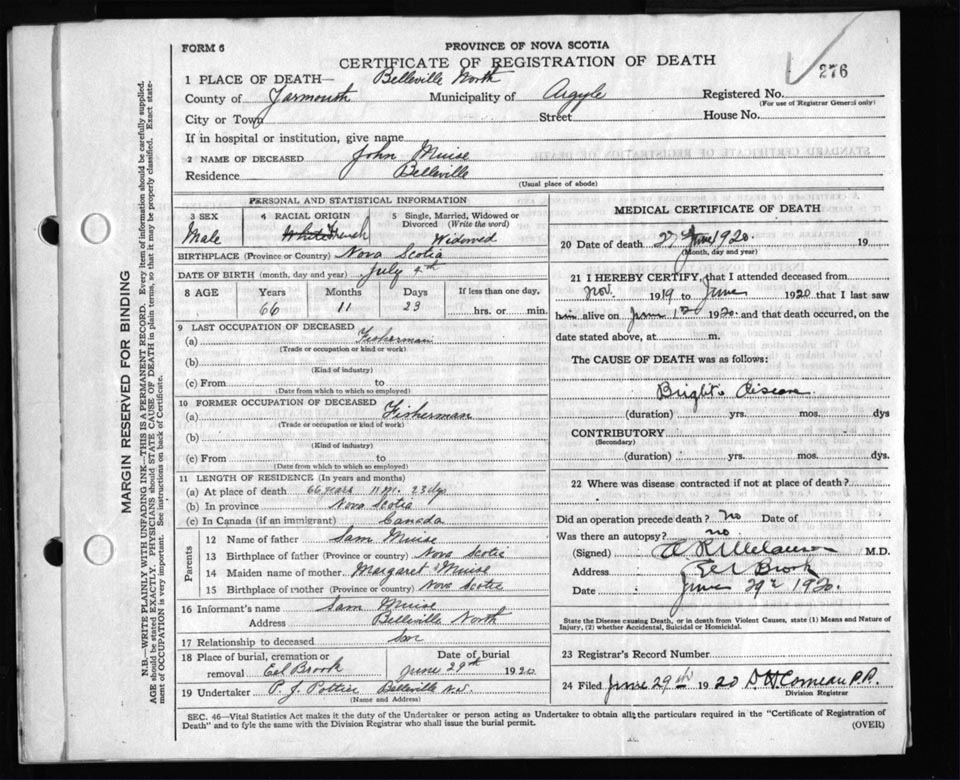 FORM 6
PROVINCE OF NOVA SCOTIA
CERTIFICATE OF REGISTRATION OF DEATH
276
1 PLACE OF DEATH— Belleville North
County of Yarmouth Municipality of Argyle Registered No.
(For use of Registrar General only)
City or Town Street House No.
If in hospital or institution, give name
2 NAME OF DECEASED John Muise
Residence Belleville
(Usual place of abode)
PERSONAL AND STATISTICAL INFORMATION
3 SEX 4 RACIAL ORIGIN 5 Single, Married, Widowed or
Divorced (Write the word)
Male White French Widowed
BIRTHPLACE (Province or Country) Nova Scotia
DATE OF BIRTH (month, day and year) July 4th
8 AGE Years Months Days If less than one day,
66 11 23 hrs. or min.
9 LAST OCCUPATION OF DECEASED
(a) Fisherman
(Trade or occupation or kind of work)
(b)
(Kind of industry)
(c) From to
(Date from which to which so employed)
10 FORMER OCCUPATION OF DECEASED
(a) Fisherman
(Trade or occupation or kind of work)
(b)
(Kind of industry)
(c) From to
(Date from which to which so employed)
11 LENGTH OF RESIDENCE (In years and months)
(a) At place of death 66 years 11 m. 23 dys
(b) In province Nova Scotia
(c) In Canada (if an immigrant) Canada
Parents
12 Name of father Sam Muise
13 Birthplace of father (Province or country) Nova Scotia
14 Maiden name of mother Margaret Muise
15 Birthplace of mother (Province or country) Nova Scotia
16 Informant's name Sam Muise
Address Belleville North
17 Relationship to deceased Son
18 Place of burial, cremation or Date of burial
removal Eel Brook June 29th 1920
19 Undertaker P. J. Pottier Belleville N.S.
(Name and Address)
MEDICAL CERTIFICATE OF DEATH
20 Date of death 27 June 1920 19
(Month, day and year)
21 I HEREBY CERTIFY, that I attended deceased from
Nov. 1919 to June 1920 that I last saw
him alive on June 1920. and that death occurred, on the
date stated above, at m.
The CAUSE OF DEATH was as follows:
Bright's Disease
(duration) yrs. mos. dys
CONTRIBUTORY
(Secondary)
(duration) yrs. mos. dys.
22 Where was disease contracted if not at place of death?
Did an operation precede death? no Date of
Was there an autopsy? no
(Signed) M.D.
Address Eel Brook
Date June 29 1920.
State the Disease causing Death, or in death from Violent Causes, state (1) Means and Nature of
Injury, (2) whether Accidental, Suicidal or Homicidal.
23 Registrar's Record Number
24 Filed June 29th 1920 Comeau P.P.
Division Registrar
SEC. 46—Vital Statistics Act makes it the duty of the Undertaker or person acting as Undertaker to obtain all the particulars required in the "Certificate of Registration of
Death" and to fyle the same with the Division Registrar who shall issue the burial permit.
(OVER)
MARGIN RESERVED FOR BINDING
N.B.—WRITE PLAINLY WITH UNFADING INK—THIS IS A PERMANENT RECORD. Every item of information should be carefully supplied.
AGE should be stated EXACTLY. PHYSICIANS should STATE CAUSE OF DEATH in plain terms, so that it may be properly classified. Exact state-
ment of OCCUPATION is very important. See instructions on back of Certificate.